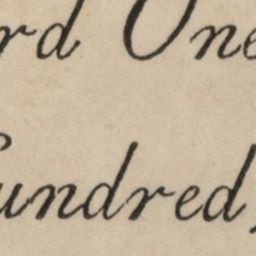 rd One
hundred,